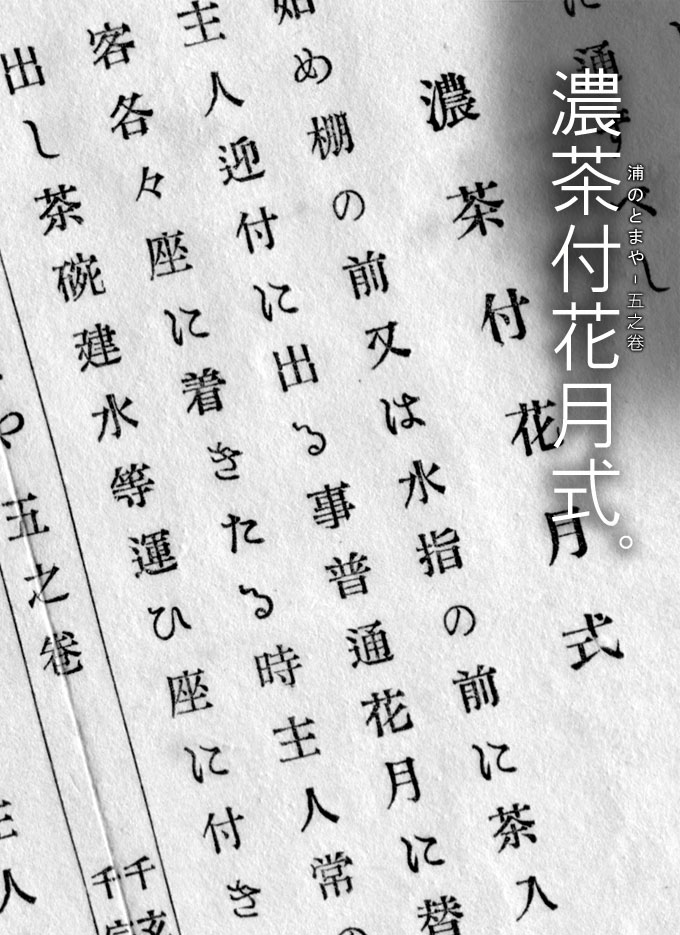 浦のとまや - 五之巻
濃茶付花月式。
に通ずべし
濃茶付花月式
始め棚の前又は水指の前に茶入
主人迎付に出る事普通花月に替
客各々座に着きたる時主人常の
出し茶碗建水等運ひ座に付き
や五之巻
千玄
千宗
主人